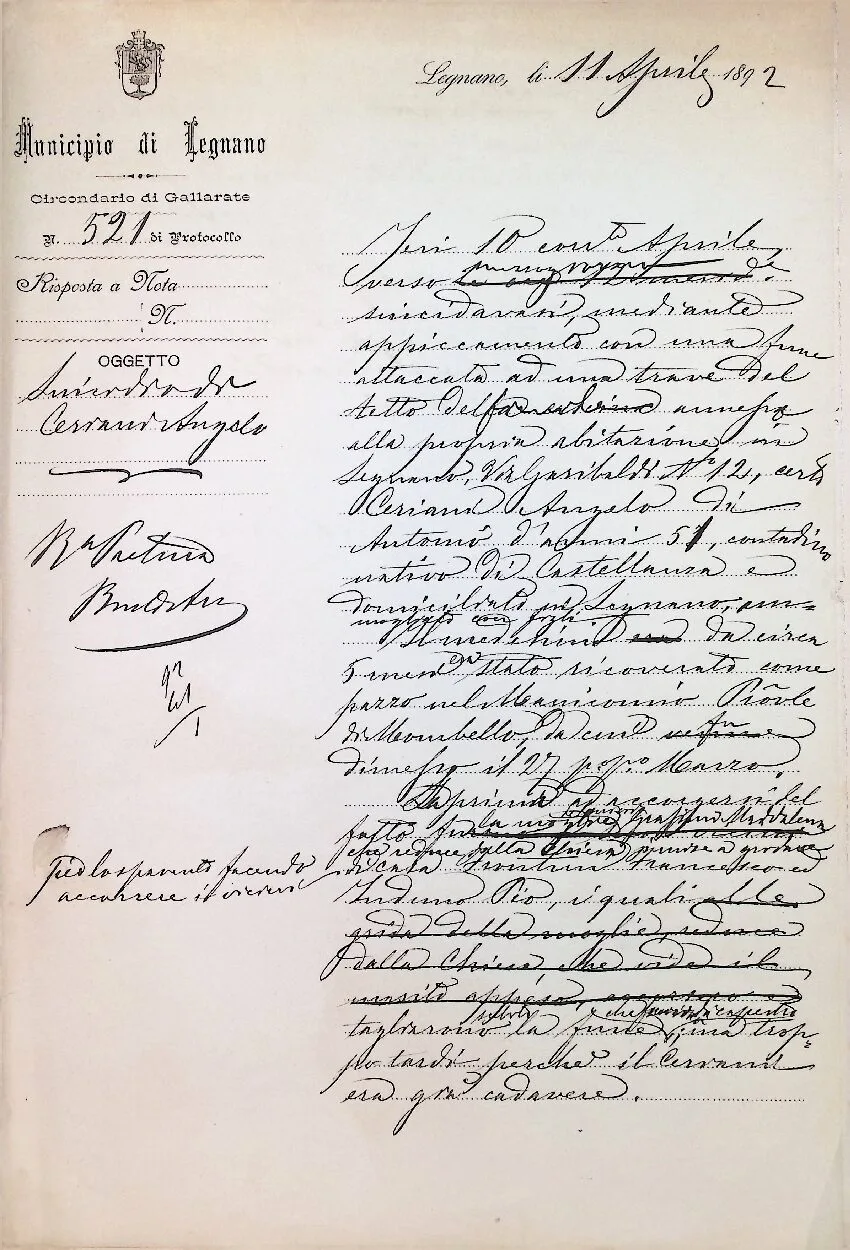 Legnano, li 11 Aprile 1892
Municipio di Legnano
Circondario di Gallarate
N. 521 di Protocollo
Risposta a Nota
N.
OGGETTO
Suicidio di
Ceriani Angelo
Ra Pretura
Busto Ars
Jeri 10 corrte Aprile,
verso mezzogiorno
suicidavasi, mediante
appiccamento con una fune
attaccata ad una trave del
tetto della cascina annessa
alla propria abitazione in
Legnano, Via Garibaldi No 12, certo
Ceriani Angelo di
Antonio d'anni 51, contadino
nativo di Castellanza e
domiciliato in Legnano, am-
mogliato con figli.
Il medesimo era da circa
5 mesi stato ricoverato come
pazzo nel Manicomio Prõvle
di Mombello, da cui
dimesso il 27 p.pto Marzo.
La prima ad accorgersi del
fatto fu la moglie Maddalena
che reduce dalla Chiesa
di casa Francesco ed
Induno Pio, i quali alle
grida della moglie, reduce
dalla Chiesa, che vide il
marito appeso, accorsero e
tagliarono subito la fune; ma trop-
po tardi perché il Ceriani
era già cadavere.
per lo spavento facendo
accorrere i vicini